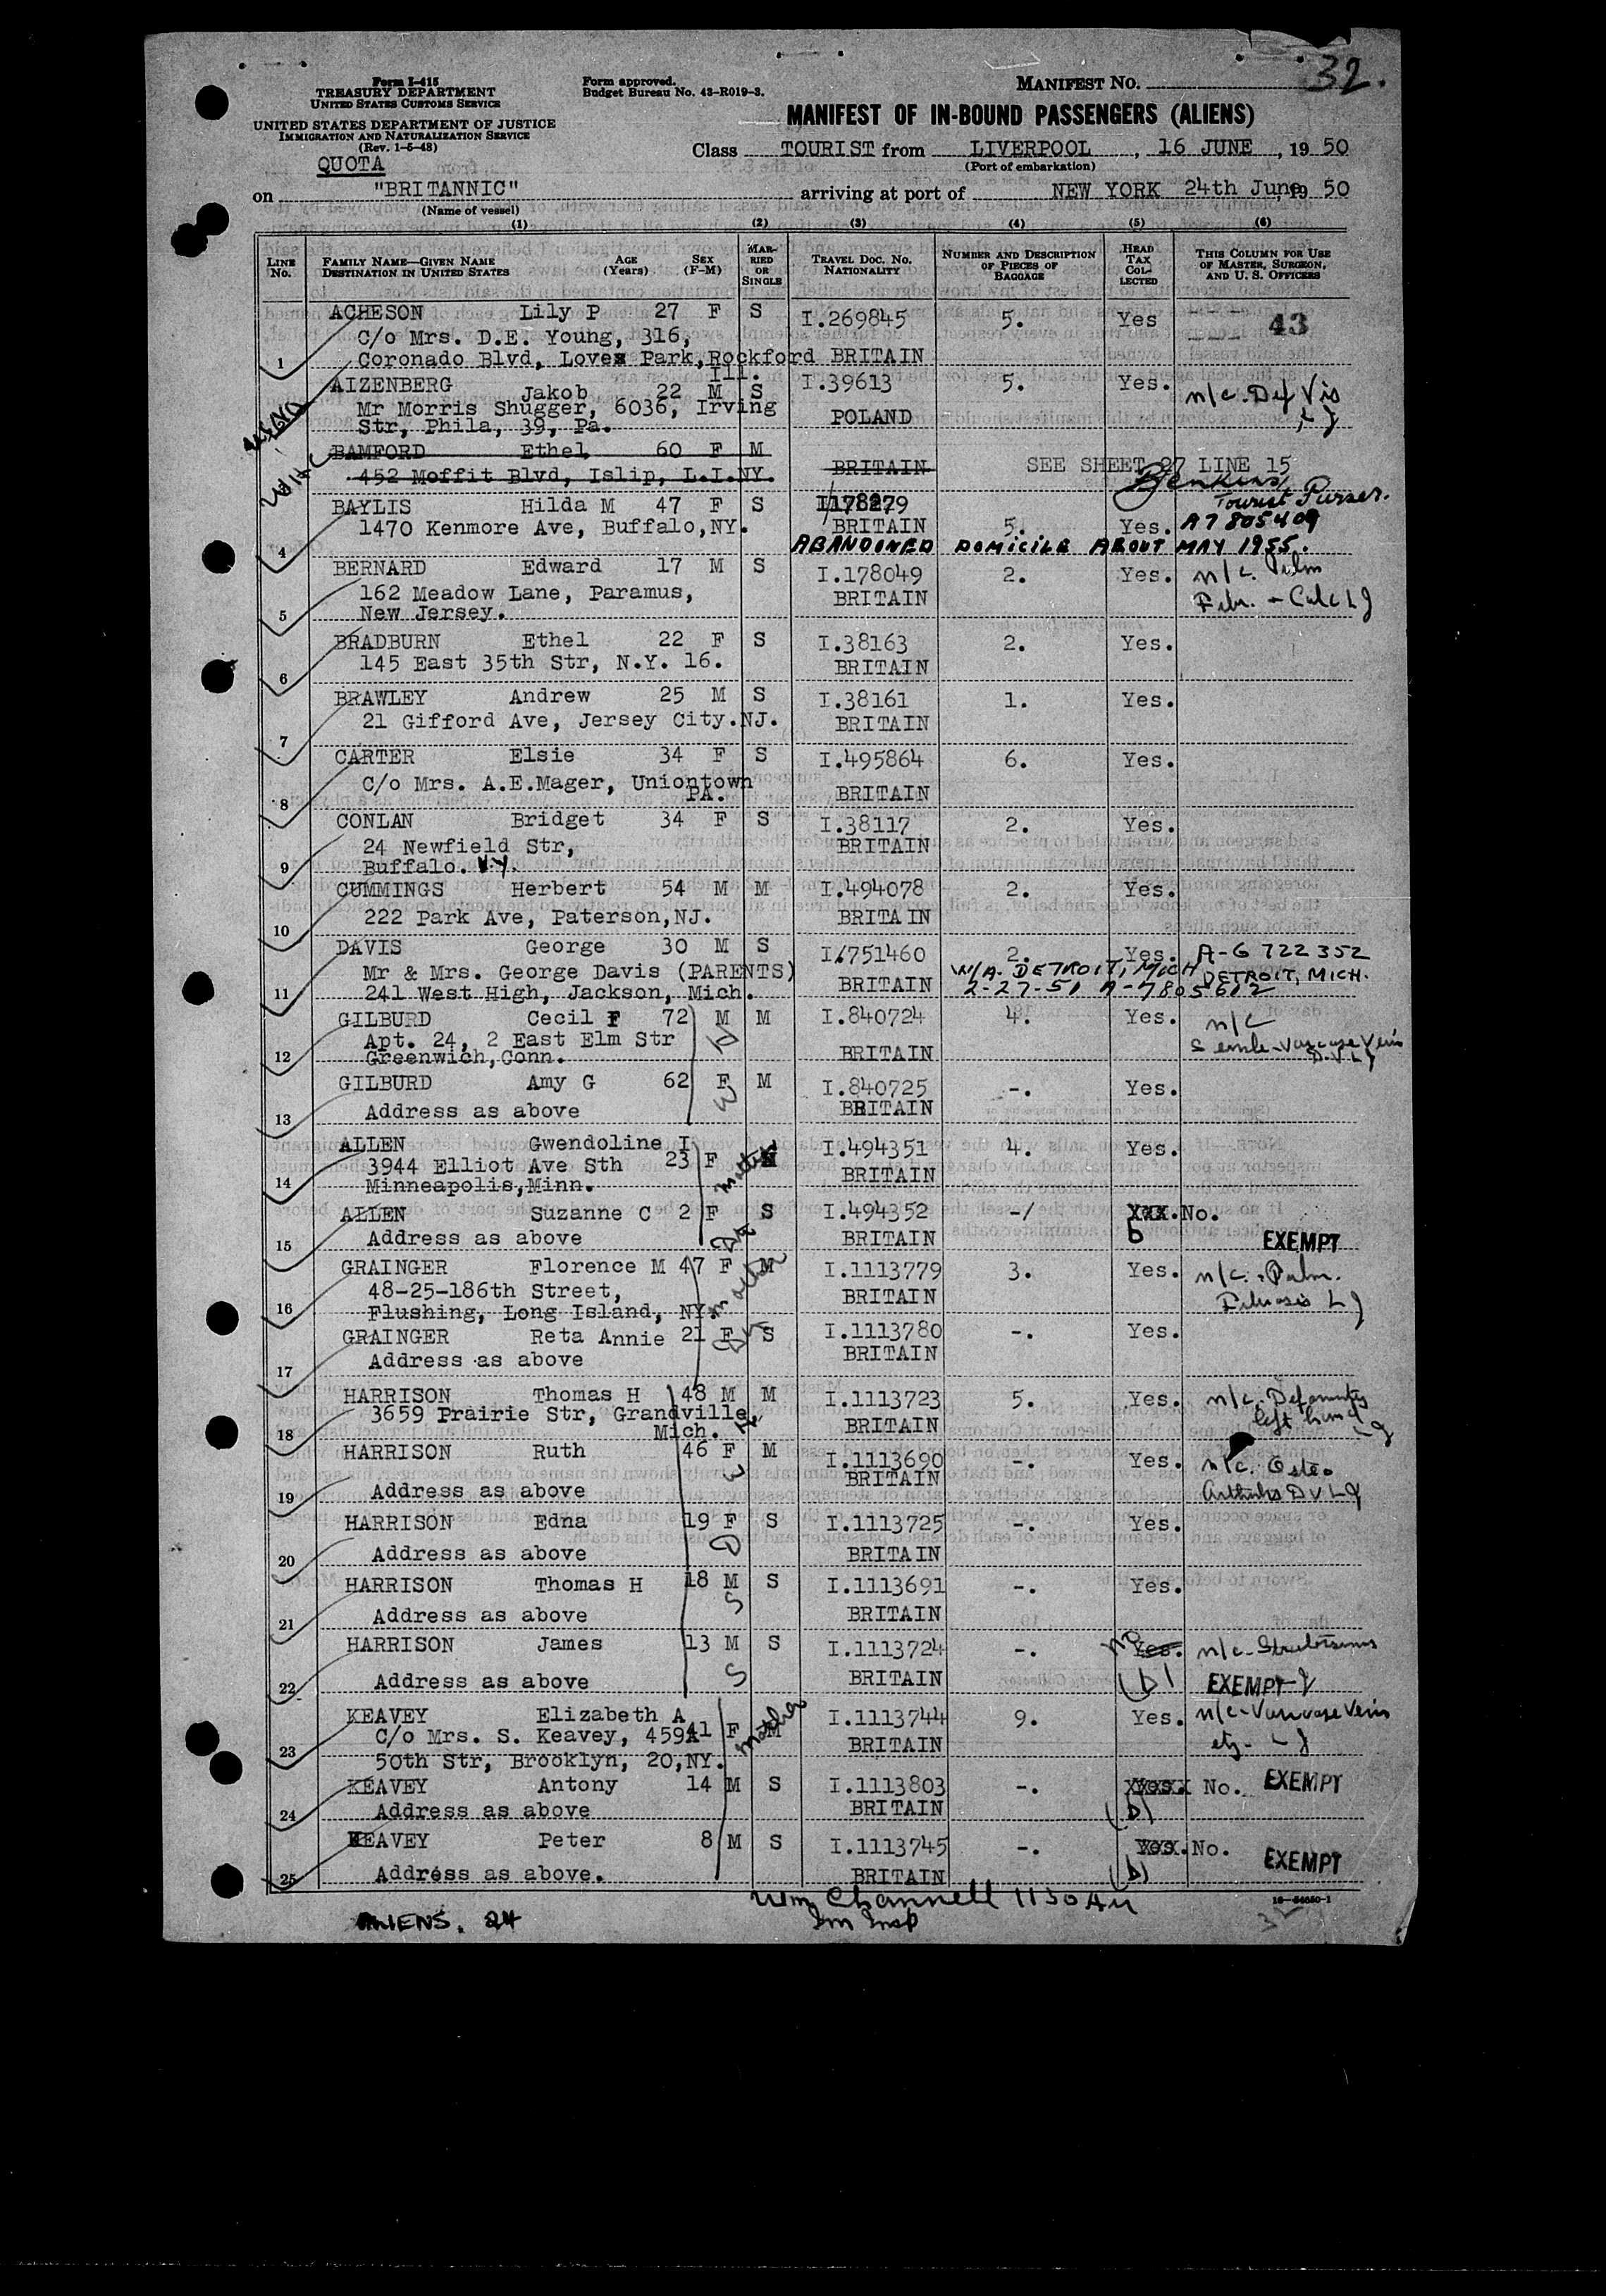 32.
Form I-415
TREASURY DEPARTMENT
UNITED STATES CUSTOMS SERVICE
Form approved.
Budget Bureau No. 43-R019-3.
MANIFEST NO.
UNITED STATES DEPARTMENT OF JUSTICE
IMMIGRATION AND NATURALIZATION SERVICE
(Rev. 1-5-48)
MANIFEST OF IN-BOUND PASSENGERS (ALIENS)
QUOTA
Class TOURIST from LIVERPOOL, 16 JUNE, 19 50
(Port of embarkation)
on "BRITANNIC" arriving at port of NEW YORK 24th June, 19 50
(Name of vessel)
(1) (2) (3) (4) (5) (6)
LINE No. FAMILY NAME—GIVEN NAME DESTINATION IN UNITED STATES AGE (Years) SEX (F-M) MARRIED OR SINGLE TRAVEL DOC. NO. NATIONALITY NUMBER AND DESCRIPTION OF PIECES OF BAGGAGE HEAD TAX COLLECTED THIS COLUMN FOR USE OF MASTER, SURGEON, AND U. S. OFFICERS
ACHESON Lily P 27 F S I.269845 5. Yes 43
C/o Mrs. D.E. Young, 316,
1 Coronado Blvd, Loves Park, Rockford Ill. BRITAIN
AIZENBERG Jakob 22 M S I.39613 5. Yes. n/c. Def Vis
Mr Morris Shugger, 6036, Irving
Str, Phila, 39, Pa. POLAND
BAMFORD Ethel 60 F M
452 Moffit Blvd, Islip, L.I.NY. BRITAIN SEE SHEET 27 LINE 15
Jenkins
Tourist Purser.
BAYLIS Hilda M 47 F S
1470 Kenmore Ave, Buffalo,NY. BRITAIN 5. Yes. A7 805409
4 ABANDONED DOMICILE ABOUT MAY 1955.
BERNARD Edward 17 M S I.178049 2. Yes. n/c. Pulm
162 Meadow Lane, Paramus, BRITAIN Fibr.
5 New Jersey.
BRADBURN Ethel 22 F S I.38163 2. Yes.
145 East 35th Str, N.Y. 16. BRITAIN
6
BRAWLEY Andrew 25 M S I.38161 1. Yes.
21 Gifford Ave, Jersey City.NJ. BRITAIN
7
CARTER Elsie 34 F S I.495864 6. Yes.
C/o Mrs. A.E.Mager, Uniontown
8 PA. BRITAIN
CONLAN Bridget 34 F S I.38117 2. Yes.
24 Newfield Str, BRITAIN
9 Buffalo. N.Y.
CUMMINGS Herbert 54 M M I.494078 2. Yes.
222 Park Ave, Paterson,NJ. BRITAIN
10
DAVIS George 30 M S I.751460 2. Yes. A-6 722 352
Mr & Mrs. George Davis (PARENTS) BRITAIN W/A. DETROIT, MICH DETROIT, MICH.
11 241 West High, Jackson, Mich. 2-27-51 A-7805612
GILBURD Cecil F 72 M M I.840724 4. Yes. n/c
Apt. 24, 2 East Elm Str Senile-Varicose Veins
12 Greenwich,Conn. BRITAIN D.V.L
GILBURD Amy G 62 F M I.840725 -. Yes.
13 Address as above BRITAIN
ALLEN Gwendoline I I.494351 4. Yes.
3944 Elliot Ave Sth 23 F M Mother BRITAIN
14 Minneapolis,Minn.
ALLEN Suzanne C 2 F S I.494352 -/ No.
15 Address as above BRITAIN b EXEMPT
GRAINGER Florence M 47 F M Mother I.1113779 3. Yes. n/c. Pulm.
48-25-186th Street, BRITAIN Fibrosis
16 Flushing, Long Island, NY.
GRAINGER Reta Annie 21 F S I.1113780 -. Yes.
17 Address as above BRITAIN
HARRISON Thomas H 48 M M I.1113723 5. Yes. n/c. Deformity
3659 Prairie Str, Grandville, BRITAIN left hand
18 Mich.
HARRISON Ruth 46 F M W I.1113690 -. Yes. n/c. Osteo
19 Address as above BRITAIN Arthritis D V L
HARRISON Edna 19 F S D I.1113725 -. Yes.
20 Address as above BRITAIN
HARRISON Thomas H 18 M S S I.1113691 -. Yes.
21 Address as above BRITAIN
HARRISON James 13 M S I.1113724 -. Yes. no n/c-Strabismus
22 Address as above S BRITAIN (b) EXEMPT
KEAVEY Elizabeth A I.1113744 9. Yes. n/c-Varicose Veins
C/o Mrs. S. Keavey, 459A 41 F M Mother BRITAIN
23 50th Str, Brooklyn, 20,NY.
KEAVEY Antony 14 M S I.1113803 -. No. EXEMPT
24 Address as above BRITAIN (b)
KEAVEY Peter 8 M S I.1113745 -. No.
25 Address as above. BRITAIN (b) EXEMPT
Wm Channell 1130 AM
Im Insp
ALIENS. 24